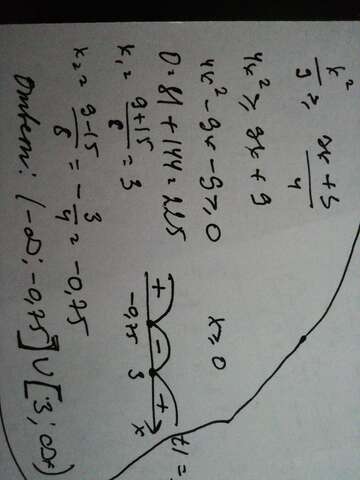 x²/3 ≥ (3x + 3)/4
4x² ≥ 9x + 9
4x² - 9x - 9 ≥ 0
x ≥ 0
D = 81 + 144 = 225
x₁ = (9+15)/8 = 3
x₂ = (9-15)/8 = -3/4 = -0,75
+ - +
-0,75 3 x
Ответ: (-∞; -0,75] ∪ [3; ∞)